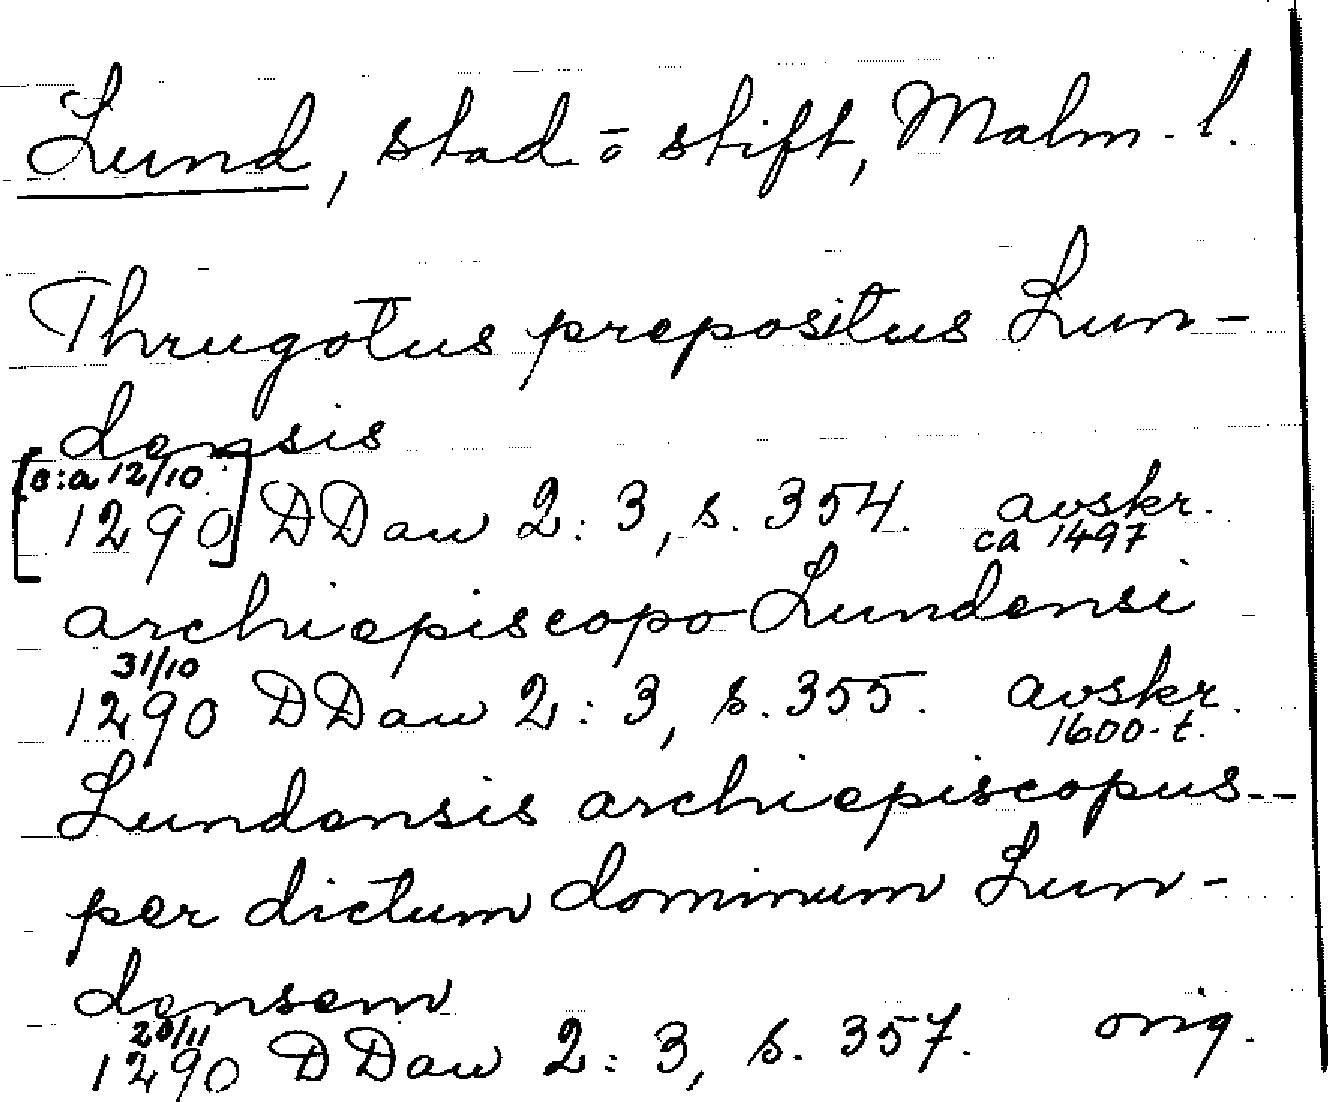 Lund, stad o stift, Malm. l.
Thrugotus prepositus Lun-
densis
[e:a 12/10
1290] DDan 2:3, s. 354. avskr.
ca 1497
archiepiscopo Lundensi
31/10
1290 DDan 2:3, s. 355. avskr.
1600-t.
Lundensis archiepiscopus--
per dictum dominum Lun-
densem
1290 DDan 2:3, s. 357. orig.